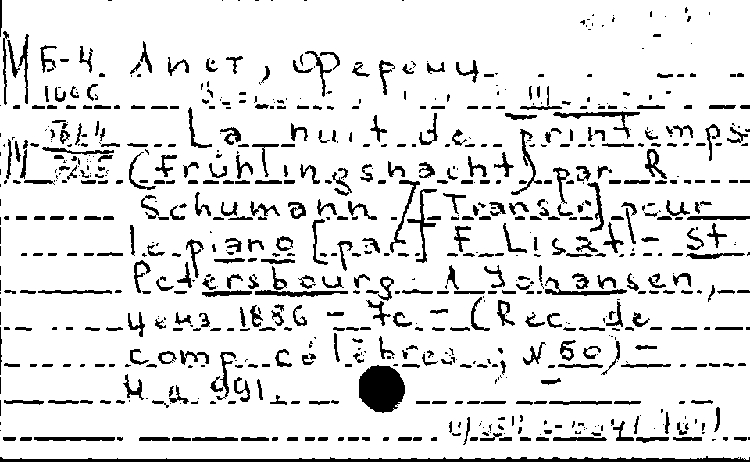 М Б-4 Лист, Ференц
1006 III
La nuit de printemps
М (Frühlingsnacht) par R
Schumann / [Transcr] pour
le piano [par] F Liszt - St
Petersbourg. А Johansen,
ценз 1886 - 7с - (Rec de
comp célèbres ; N 50) -
Н д 991.